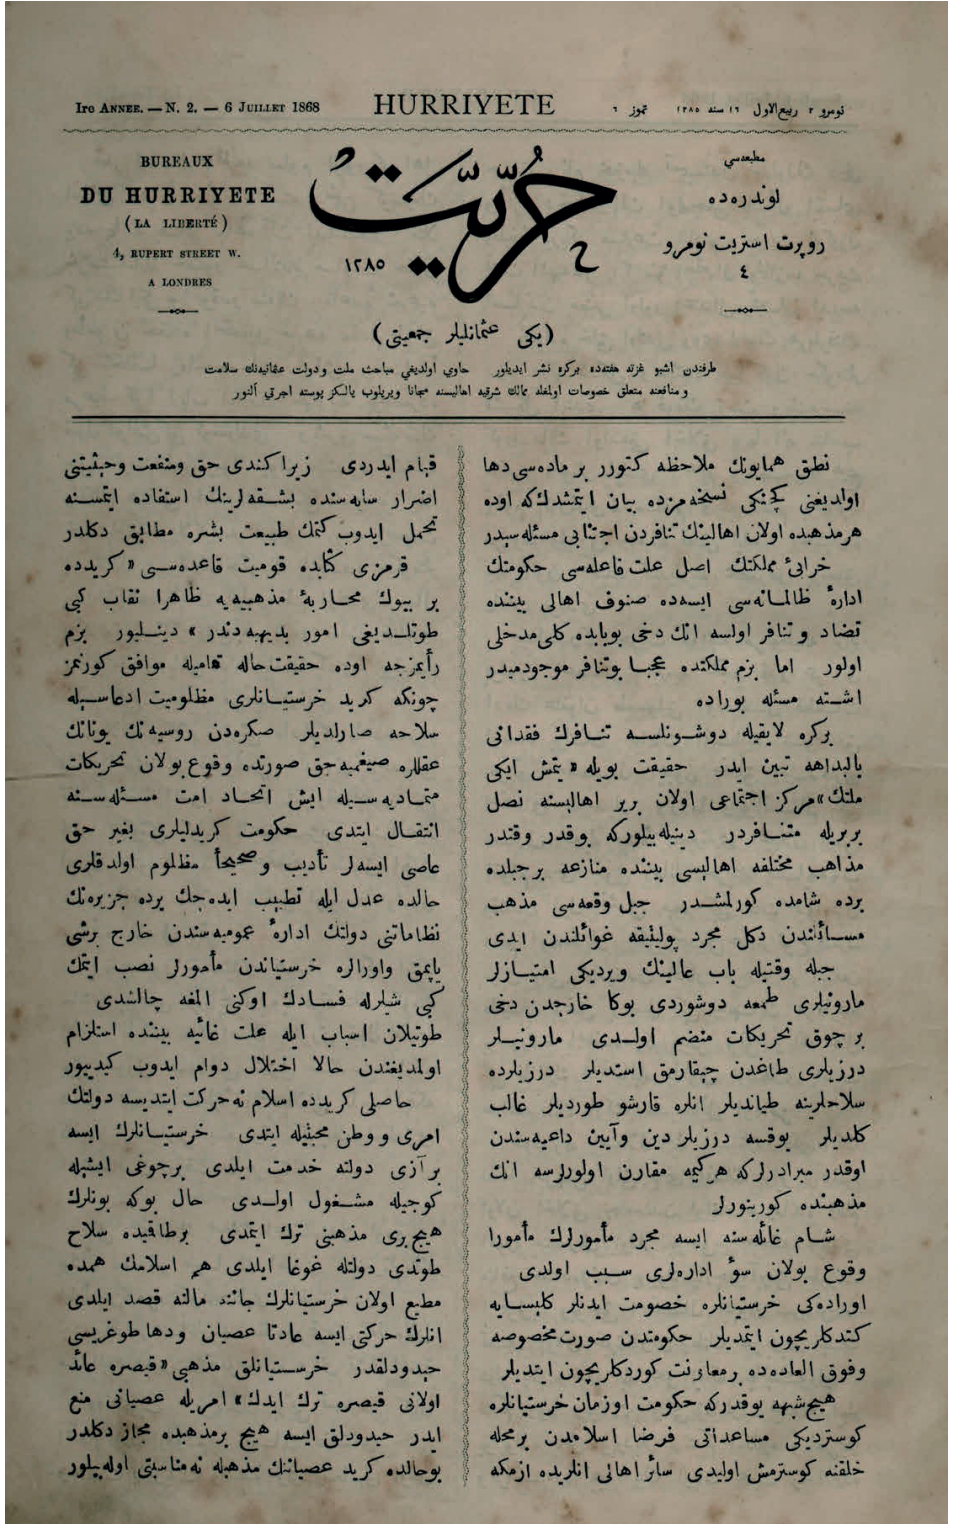 Ire ANNEE. — N. 2. — 6 JUILLET 1868
HURRIYETE
نومرو ٢ ربيع‌الاول ١٦ سنه ١٢٨٥ تموز ٦
BUREAUX
DU HURRIYETE
(LA LIBERTÉ)
4, RUPERT STREET W.
A LONDRES
حُرِّيَّت
١٢٨٥
مطبعه‌سي
لوندره‌ده
روپرت استريت نومرو
٤
(يكى عثمانليلر جمعيتى)
طرفندن اشبو غزته هفته‌ده بركره نشر ايديلور حاوي اولديغي مباحث ملت ودولت عثمانيه‌نك سلامت
ومنافعنه متعلق خصوصات اولمغله ممالك شرقيه اهاليسنه مجانا ويريلوب يالكز پوسته اجرتي آلنور
نطق همايونك ملاحظه كتورر بر ماده‌سى دها
اولديغنى كچنكى نسخه‌مزده بيان ايتمشدك‌كه اوده
هر مذهبده اولان اهالينك تنافردن اجتنابى مسئله‌سيدر
خرابئ مملكتك اصل علت فاعله‌سى حكومتك
ادارهٔ ظالمانه‌سى ايسه‌ده صنوف اهالى بيننده
تضاد و تنافر اولسه انك دخى بوبابده كلى مدخلى
اولور اما بزم مملكتده عجبا بوتنافر موجودميدر
اشته مسئله بوراده
بركره لايقيله دوشونلسه تنافرك فقدانى
بالبداهه تبين ايدر حقيقت بويله «يتمش ايكى
ملتك» مركز اجتماعى اولان برير اهاليسنه نصل
بربريله متنافردر دينيله‌بيلورکه بوقدر وقتدر
مذاهب مختلفه اهاليسى بيننده منازعه برجبلده
برده شامده كورلمشدر جبل وقعه‌سى مذهب
مسائلندن دكل مجرد پوليتيقه غوائلندن ايدى
جبله وقتيله باب عالينك ويرديكى امتيازلر
مارونيلرى طمعه دوشوردى بوكا خارجدن دخى
بر چوق تحريكات منضم اولدى مارونيلر
درزيلرى طاغدن چيقارمق استديلر درزيلرده
سلاحلرينه طيانديلر انلره قارشو طورديلر غالب
كلديلر يوقسه درزيلر دين وآيين داعيه‌سندن
اوقدر مبرادرلركه هر كيمه مقارن اولورلرسه انك
مذهبنده كورينورلر
شام غائله‌سنه ايسه مجرد مأمورلرك مأمورا
وقوع بولان سوٴ اداره‌لرى سبب اولدى
اوراده‌كى خرستيانلره خصومت ايدنلر كليسايه
كتدكلريچون ايتمديلر حكومتدن صورت مخصوصه
وفوق العاده‌ده بر معاونت كوردكلريچون ايتديلر
هيچ شبهه يوقدركه حكومت اوزمان خرستيانلره
كوسترديكى مساعداتى فرضا اسلامدن بر محله
خلقنه كوسترمش اوليدى سائر اهالى انلريده ازمكه
قيام ايدردى زيرا كندى حق ومنفعت وحيثيتنى
اضرار سايه‌سنده بشقه‌لرينك استفاده ايتمسنه
تحمل ايدوب كتمك طبيعت بشره مطابق دكلدر
قرمزى كتابده قوميت قاعده‌سى «كريدده
بر بيوك محاربهٔ مذهبيه‌يه ظاهرا نقاب كبى
طوتلديغى امور بديهيه‌دندر» دينليور بزم
رأيمزجه اوده حقيقت حاله تماميله موافق كورنمز
چونكه كريد خرستيانلرى مظلوميت ادعاسيله
سلاحه صارلديلر صكره‌دن روسيه‌نك يونانك
عقلاره صيغميه‌جق صورتده وقوع بولان تحريكات
متماديه‌سيله ايش اتحاد امت مسئله‌سنه
انتقال ايتدى حكومت كريدليلرى بغير حق
عاصى ايسه‌لر تأديب و صحيحاً مظلوم اولدقلرى
حالده عدل ايله تطييب ايده‌جك يرده جزيره‌نك
نظاماتنى دولتك ادارهٔ عموميه‌سندن خارج برشى
ياپمق واورالره خرستياندن مأمورلر نصب ايتمك
كبى شيلرله فسادك اوكنى المغه چالشدى
طوتيلان اسباب ايله علت غائيه بيننده استلزام
اولمديغندن حالا اختلال دوام ايدوب كيدييور
حاصلى كريدده اسلام نه حركت ايتديسه دولتك
امرى و وطن محبتيله ايتدى خرستيانلرك ايسه
بر آزى دولته خدمت ايلدى برچوغى ايشيله
كوجيله مشغول اولدى حال بوكه بونلرك
هيچ برى مذهبنى ترك ايتمدى برطاقيده سلاح
طوتدى دولتله غوغا ايلدى هم اسلامك همده
مطيع اولان خرستيانلرك جاننه مالنه قصد ايلدى
انلرك حركتى ايسه عادتا عصيان ودها طوغريسى
حيدودلقدر خرستيانلق مذهبى «قيصره عائد
اولانى قيصره ترك ايدك» امريله عصيانى منع
ايدر حيدودلق ايسه هيچ برمذهبده مجاز دكلدر
بوحالده كريد عصياننك مذهبله نه مناسبتى اوله‌بيلور